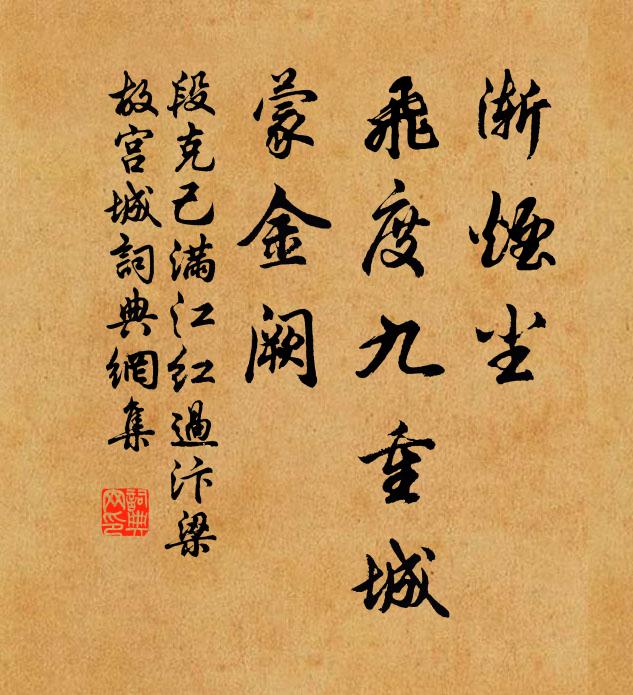 渐煙尘
飛度九重城
蒙金阙
段克己滿江红過汴梁
故宫城詞典網集
詞典网印